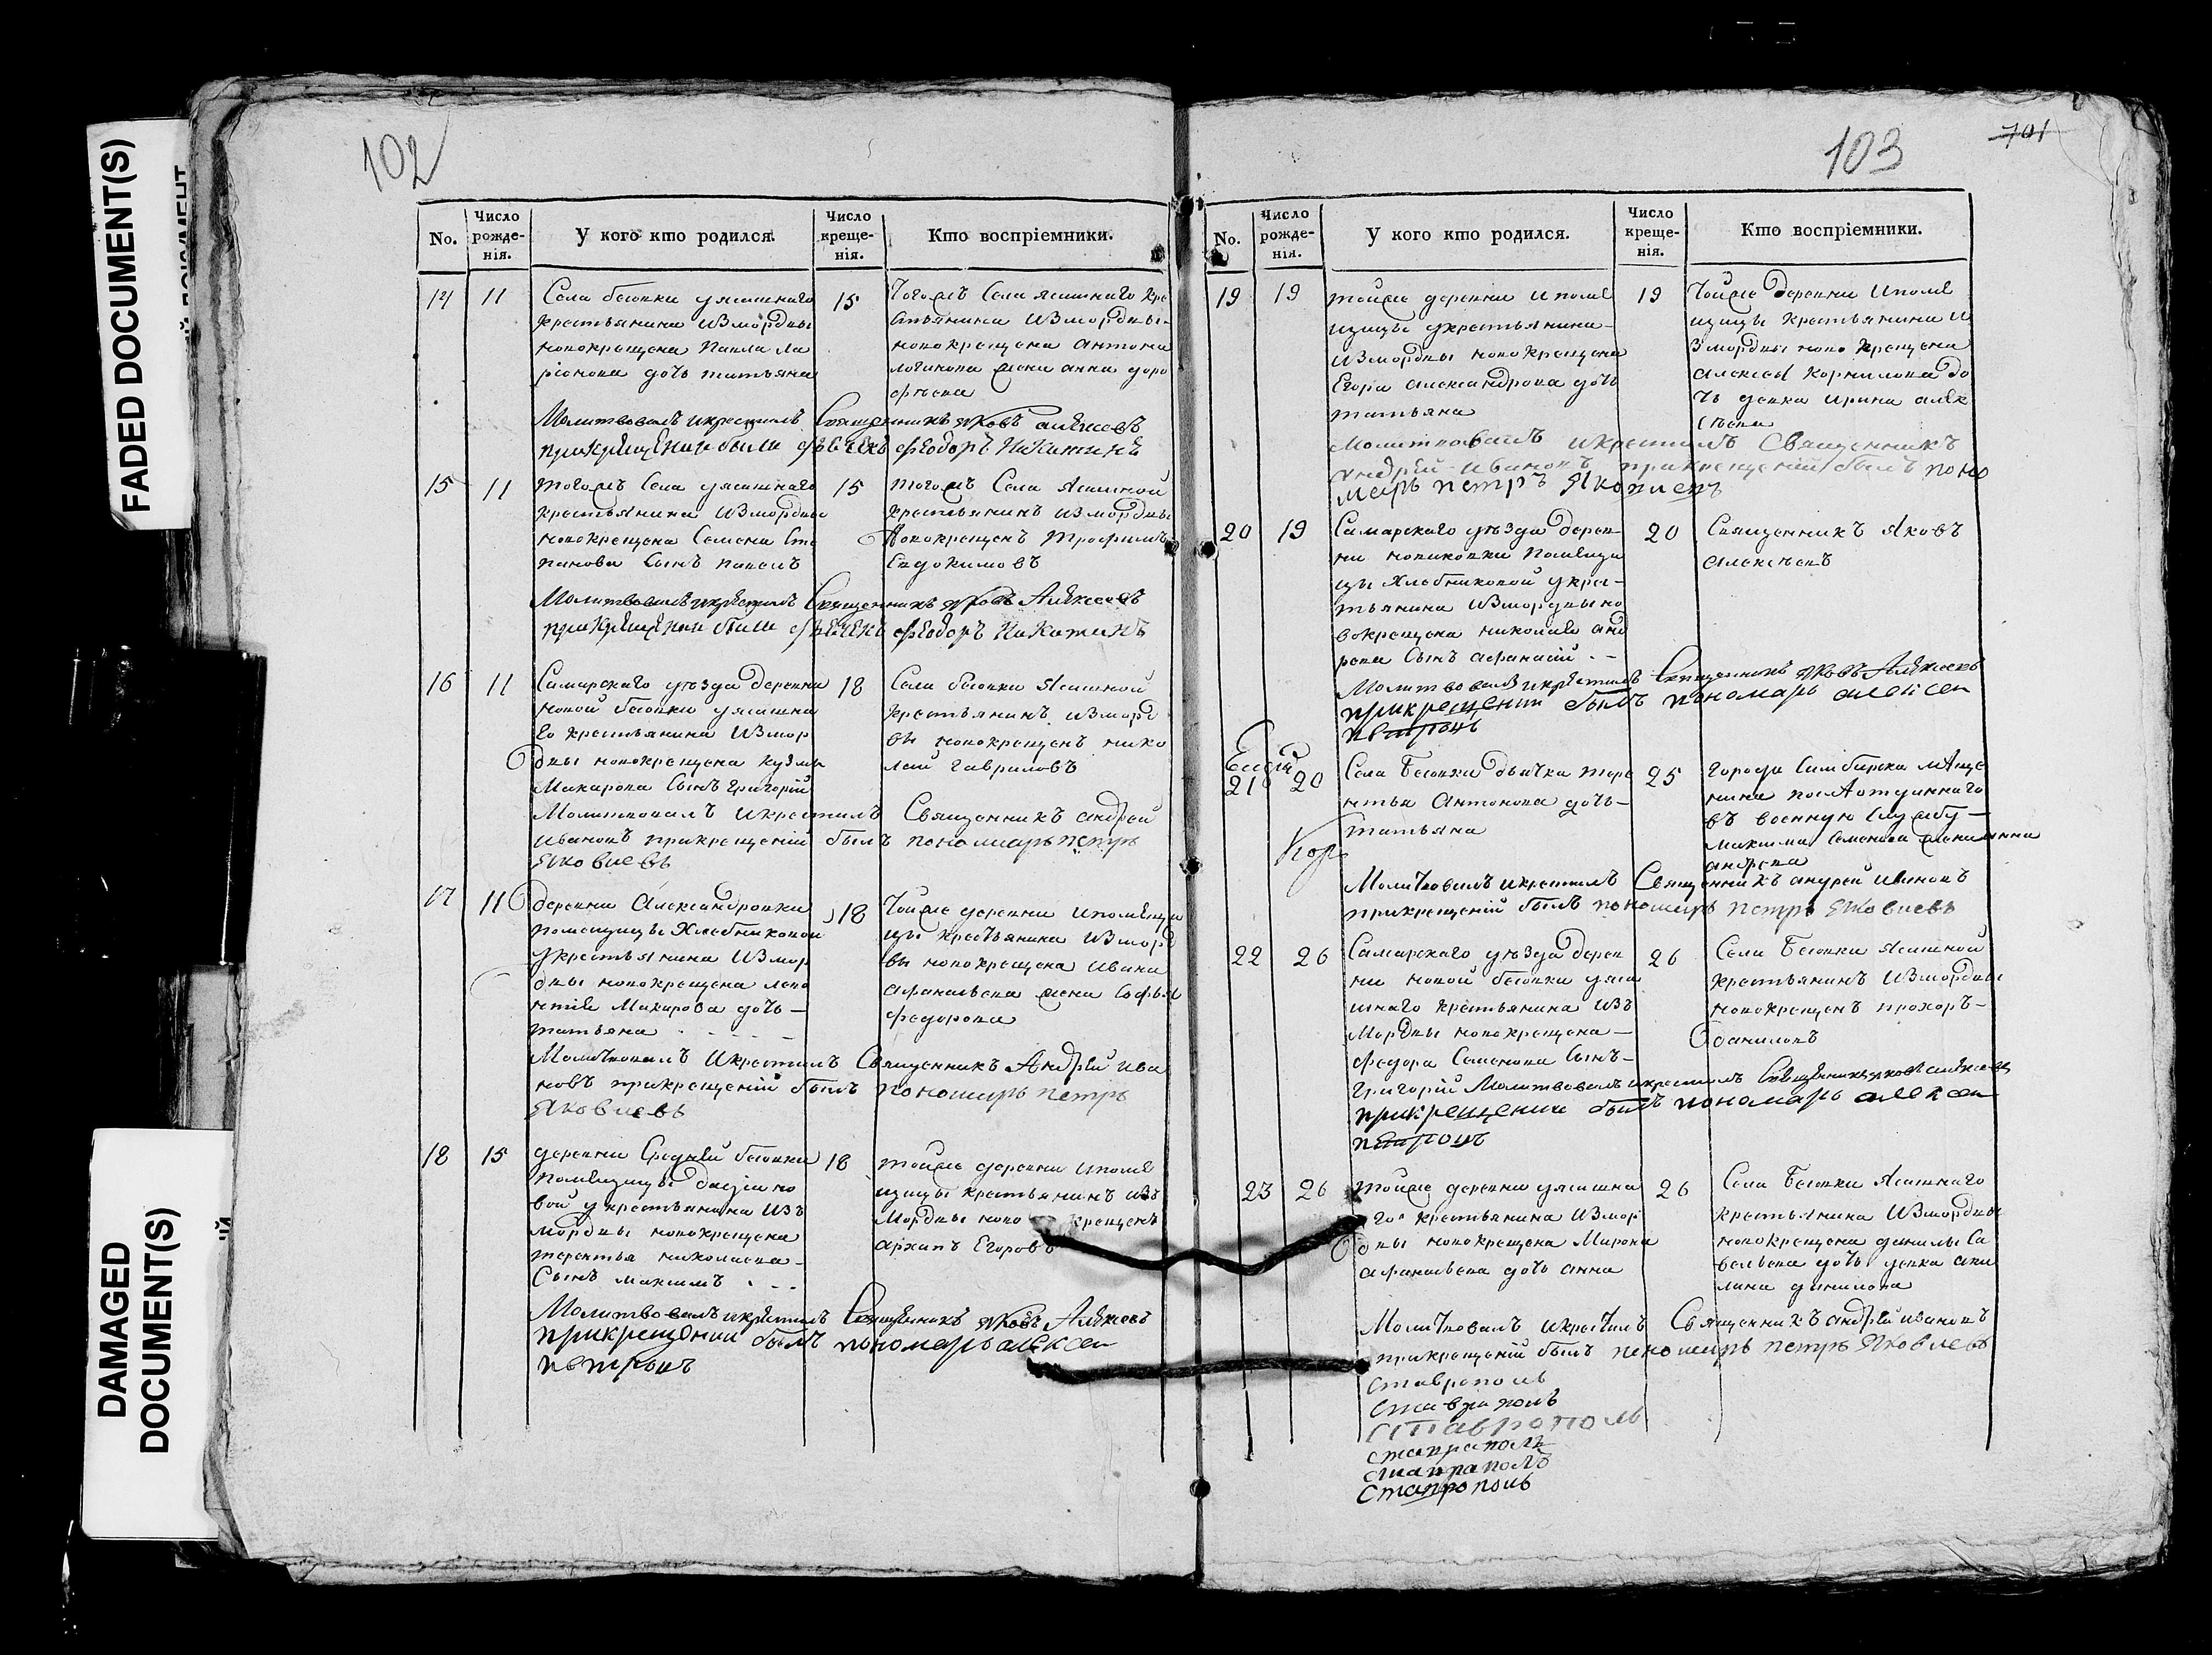 FADED DOCUMENT(S)
DAMAGED
DOCUMENT(S)
102
No.
Число
рожде-
нія.
У кого кто родился.
Число
креще-
нія.
Кто воспріемники.
14 11
Села бесовки уясашнаго
крестьянина измордвы
новокрещена Павла Ла
ріонова дочь татьяна
15
Тогожъ Села ясашнаго кре
стьянина измордвы
новокрещена антона
логинова жена анна доро
фѣева
Молитвовалъ икрестилъ Священникъ яковъ алексеевъ
прикрещении были дьячекъ Феодоръ Никитинъ
15 11
тогожъ Села уясашнаго
крестьянина измордвы
новокрещена Семена Сте
панова Сынъ павелъ
15
тогожъ Села Ясашной
крестьянинъ измордвы
новокрещенъ Трофимъ
Евдокимовъ
Молитвовалъ икрестилъ Священникъ яковъ Алексеевъ
прикрещении были дьячекъ Феодоръ Никитинъ
16 11
Самарскаго уѣзда деревни
новой бесовки уясашна
го крестьянина измор
двы новокрещена кузмы
Макарова Сынъ григорій
18
Села бесовки Ясашной
крестьянинъ изморд
вы новокрещенъ нико
лай гавриловъ
Молитвовалъ икрестилъ Священникъ андрей
ивановъ прикрещеніи былъ пономарь петръ
Яковлевъ
17 11
деревни Александровки
помещицы Хлебниковой
укрестьянина измор
двы новокрещена леон
нтия Макарова дочь
татьяна
18
Тойже деревни ипомещи
цы крестьянина изморд
вы новокрещена ивана
афанасьева жена Софья
федорова
Молитвовалъ икрестилъ Священникъ Андрей ива
новъ прикрещеніи былъ пономарь петръ
Яковлевъ
18 15
деревни Средней бесовки
помещицы
вой укрестьянина изъ
мордвы новокрещена
терентья николаева
Сынъ максимъ
18
тойже деревни ипоме
щицы крестьянинъ изъ
мордвы ново крещенъ
архипъ Егоровъ
Молитвовалъ икрестилъ Священникъ яковъ Алексеевъ
прикрещении былъ пономарь алексеи
петровъ
103
701
No.
Число
рожде-
нія.
У кого кто родился.
Число
креще-
нія.
Кто воспріемники.
19 19
тойже деревни ипоме
щицы укрестьянина
измордвы новокрещена
Егора александрова дочь
татьяна
19
Тойже деревни ипоме
щицы крестьянина и
змордвы ново крещена
алексея корнилова до
чь девка ирина алек
сѣева
Молитвовалъ икрестилъ Священникъ
Андрей ивановъ прикрещеніи былъ поно
марь петръ Яковлевъ
20 19
Самарскаго уѣзда дерев
ни новиковки помещи
цы Хлебниковой укрес
тьянина измордвы но
вокрещена николая анд
рева Сынъ афанасій
20
Священникъ Яковъ
алексѣевъ
Молитвовалъ икрестилъ Священникъ яковъ Алексеевъ
прикрещении былъ пономарь алексеи
петровъ
21 20
Села Бесовки дьячка тере
нтья Антонова дочь
татьяна
25
города Симбирска мѣща
нина поклотданнаго
въ военную службу
максима семенова жена анна
андрева
Молитвовалъ икрестилъ Священникъ андрей ивановъ
прикрещеніи былъ пономарь петръ Яковлевъ
22 26
Самарскаго уѣзда дерев
ни новой бесовки уяса
шнаго крестьянина изъ
Мордвы новокрещена
федора Семенова Сынъ
Григорій
26
Села Бесовки Ясашной
крестьянинъ измордвы
новокрещенъ прохоръ
даниловъ
Молитвовалъ икрестилъ Священникъ яковъ алексеевъ
прикрещении былъ пономарь алексеи
петровъ
23 26
тойже деревни уясашна
го крестьянина измор
двы новокрещена Мирона
афанасьева дочь анна
26
Села Бесовки Ясашнаго
крестьянина измордвы
новокрещена данилы Са
вельева дочь девка аку
лина данилова
Молитвовалъ икрестилъ Священникъ андрей ивановъ
прикрещеніи былъ пономарь петръ Яковлевъ
ставрополь
ставраполь
ставрополь
ставраполь
ставраполъ
Ставрополь